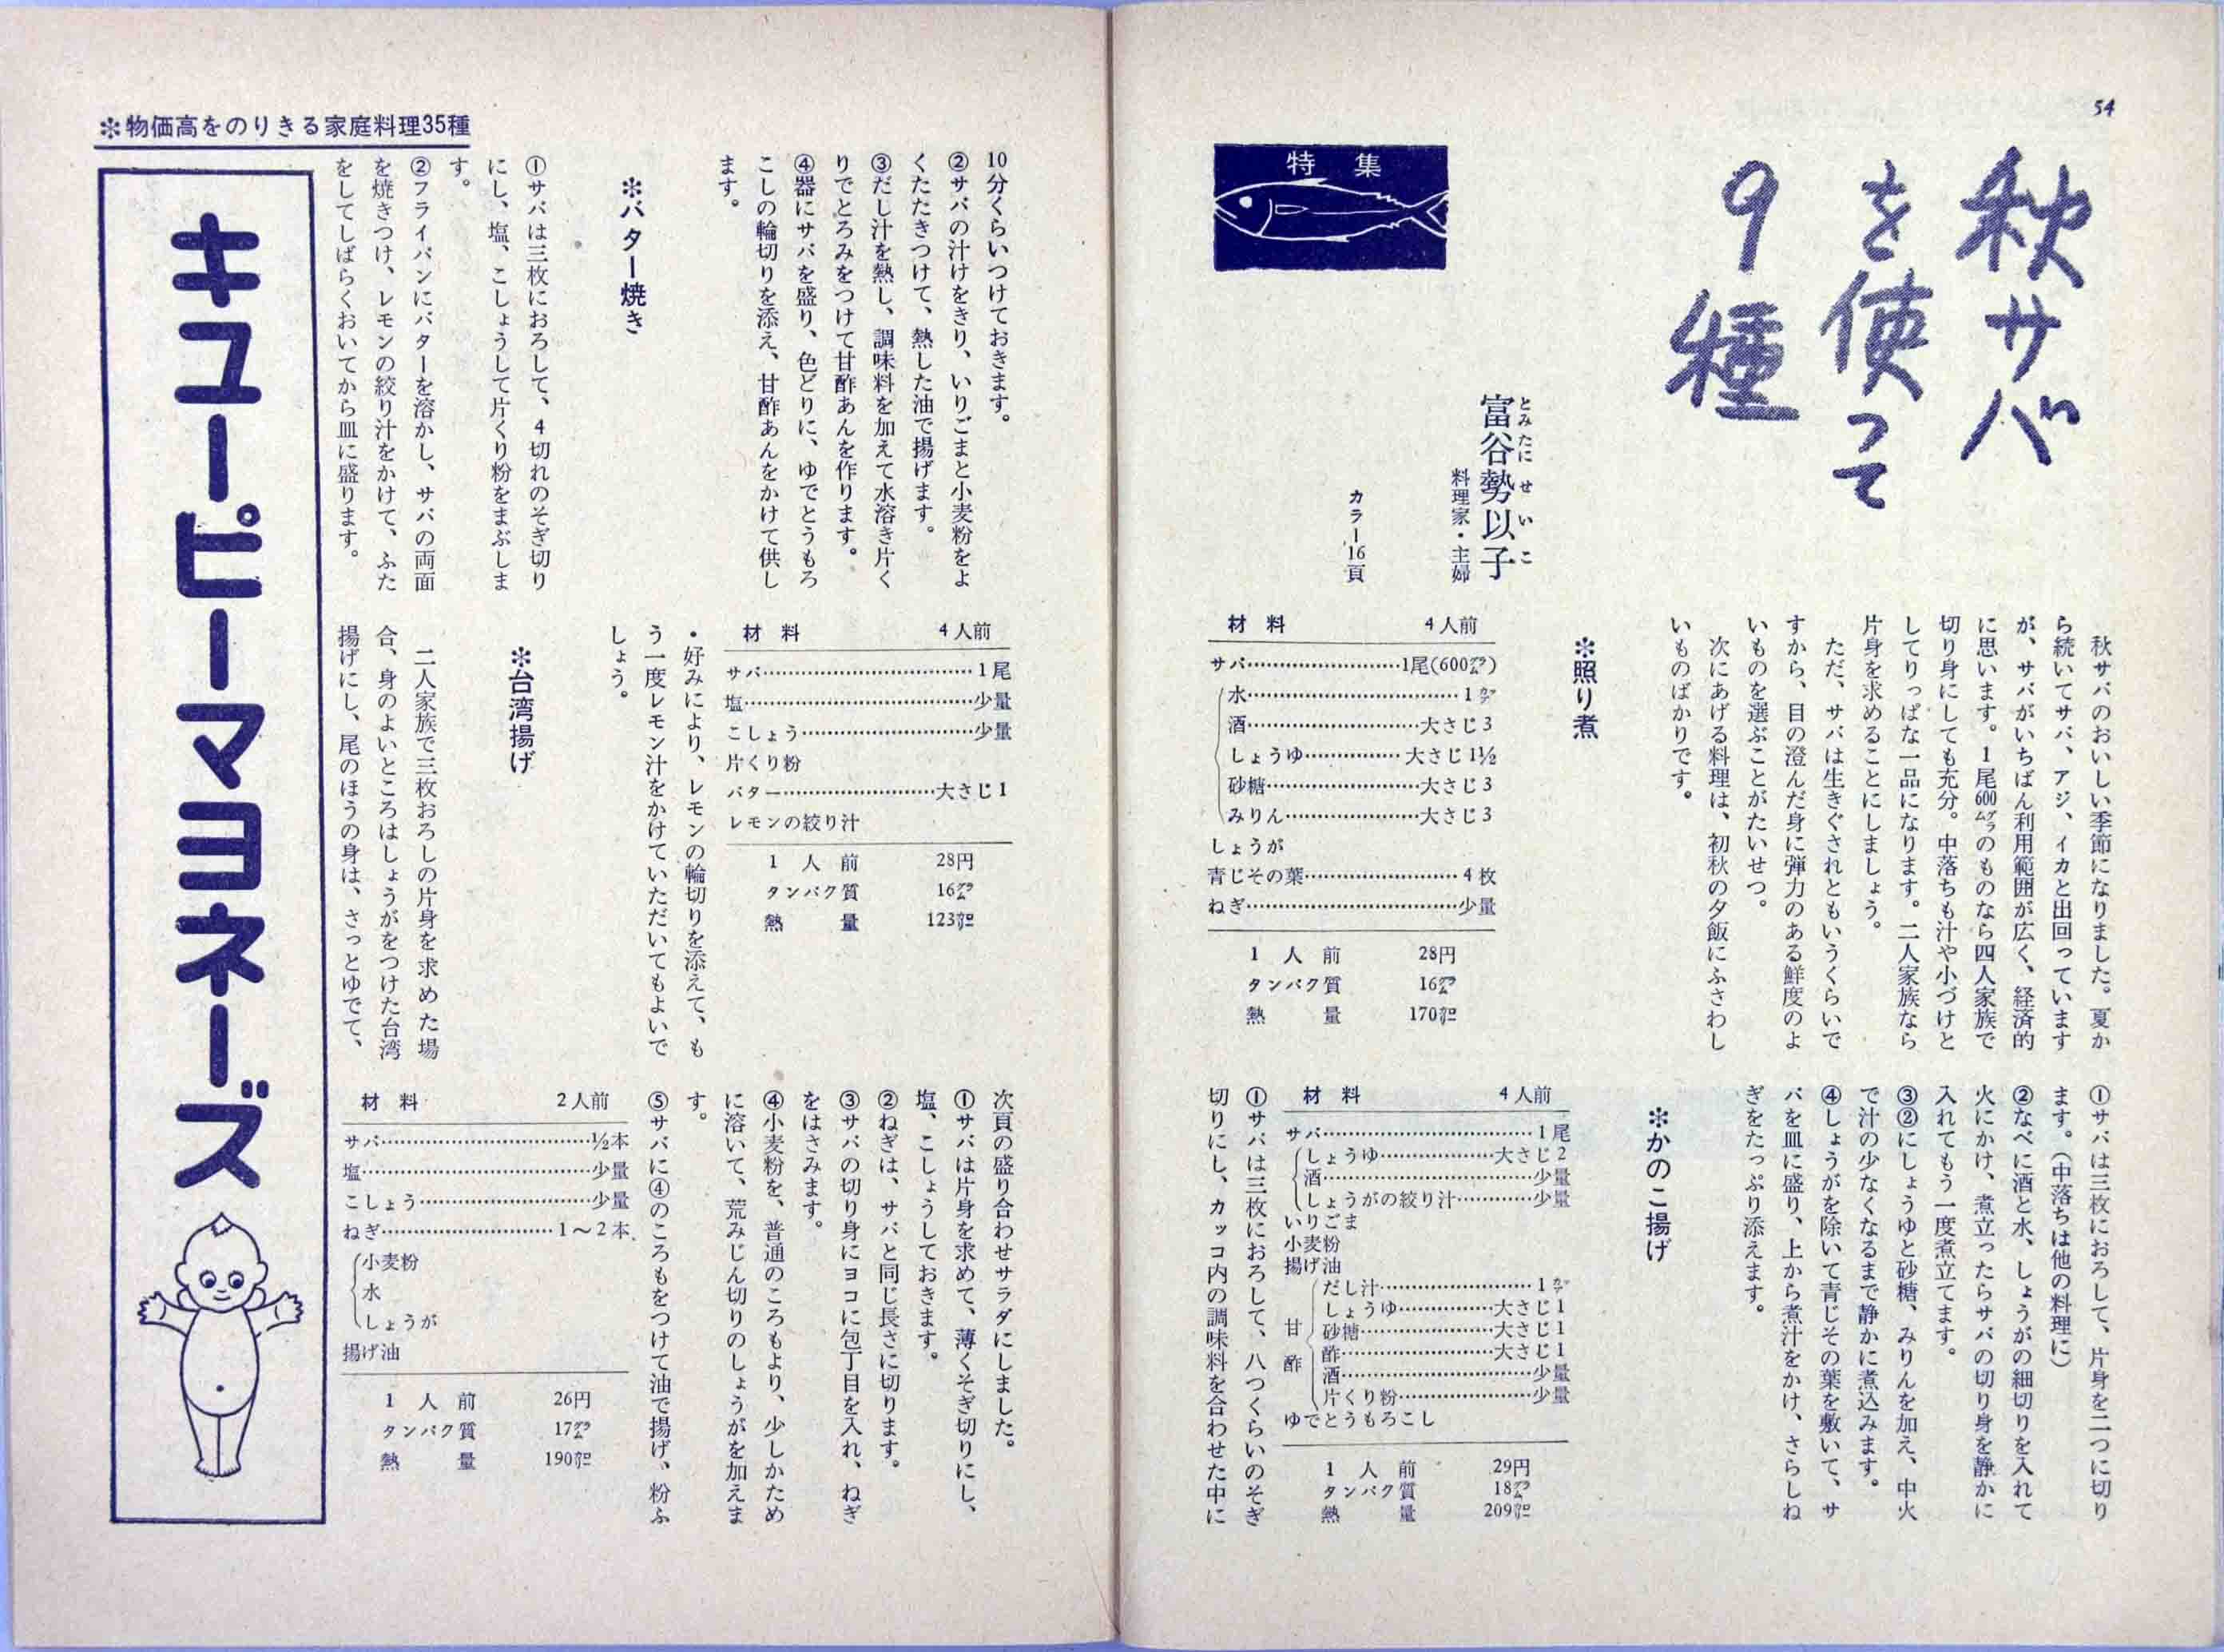 54
秋サバ
を使って
９種
特集
とみたにせいこ
富谷勢以子
料理家・主婦
カラー16頁
秋サバのおいしい季節になりました。夏か
ら続いてサバ、アジ、イカと出回っています
が、サバがいちばん利用範囲が広く、経済的
に思います。1尾600グラムのものなら四人家族で
切り身にしても充分。中落ちも汁や小づけと
してりっぱな一品になります。二人家族なら
片身を求めることにしましょう。
ただ、サバは生きぐされともいうくらいで
すから、目の澄んだ身に弾力のある鮮度のよ
いものを選ぶことがたいせつ。
次にあげる料理は、初秋の夕飯にふさわし
いものばかりです。
✻照り煮
材料 4人前
サバ……1尾(600グラム)
水……1カップ
酒……大さじ3
しょうゆ……大さじ1½
砂糖……大さじ3
みりん……大さじ3
しょうが
青じその葉……4枚
ねぎ……少量
1人前 28円
タンパク質 16グラム
熱量 170カロリー
①サバは三枚におろして、片身を二つに切り
ます。(中落ちは他の料理に)
②なべに酒と水、しょうがの細切りを入れて
火にかけ、煮立ったらサバの切り身を静かに
入れてもう一度煮立てます。
③②にしょうゆと砂糖、みりんを加え、中火
で汁の少なくなるまで静かに煮込みます。
④しょうがを除いて青じその葉を敷いて、サ
バを皿に盛り、上から煮汁をかけ、さらしね
ぎをたっぷり添えます。
✻かのこ揚げ
材料 4人前
サバ……1尾
しょうゆ……大さじ2
酒……少量
しょうがの絞り汁……少量
いりごま
小麦粉
揚げ油
甘酢
だし汁……1カップ
しょうゆ……大さじ1
砂糖……大さじ1
酢……大さじ1
酒……少量
片くり粉……少量
ゆでとうもろこし
1人前 29円
タンパク質 18グラム
熱量 209カロリー
①サバは三枚におろして、八つくらいのそぎ
切りにし、カッコ内の調味料を合わせた中に
10分くらいつけておきます。
②サバの汁けをきり、いりごまと小麦粉をよ
くたたきつけて、熱した油で揚げます。
③だし汁を熱し、調味料を加えて水溶き片く
りでとろみをつけて甘酢あんを作ります。
④器にサバを盛り、色どりに、ゆでとうもろ
こしの輪切りを添え、甘酢あんをかけて供し
ます。
✻バター焼き
①サバは三枚におろして、4切れのそぎ切り
にし、塩、こしょうして片くり粉をまぶしま
す。
②フライパンにバターを溶かし、サバの両面
を焼きつけ、レモンの絞り汁をかけて、ふた
をしてしばらくおいてから皿に盛ります。
材料 4人前
サバ……1尾
塩……少量
こしょう……少量
片くり粉
バター……大さじ1
レモンの絞り汁
1人前 28円
タンパク質 16グラム
熱量 123カロリー
・好みにより、レモンの輪切りを添えて、も
う一度レモン汁をかけていただいてもよいで
しょう。
✻台湾揚げ
二人家族で三枚おろしの片身を求めた場
合、身のよいところはしょうがをつけた台湾
揚げにし、尾のほうの身は、さっとゆでて、
次頁の盛り合わせサラダにしました。
①サバは片身を求めて、薄くそぎ切りにし、
塩、こしょうしておきます。
②ねぎは、サバと同じ長さに切ります。
③サバの切り身にヨコに包丁目を入れ、ねぎ
をはさみます。
④小麦粉を、普通のころもより、少しかため
に溶いて、荒みじん切りのしょうがを加えま
す。
⑤サバに④のころもをつけて油で揚げ、粉ふ
材料 2人前
サバ……½本
塩……少量
こしょう……少量
ねぎ……1〜2本
小麦粉
水
しょうが
揚げ油
1人前 26円
タンパク質 17グラム
熱量 190カロリー
✻物価高をのりきる家庭料理35種
キユーピーマヨネーズ